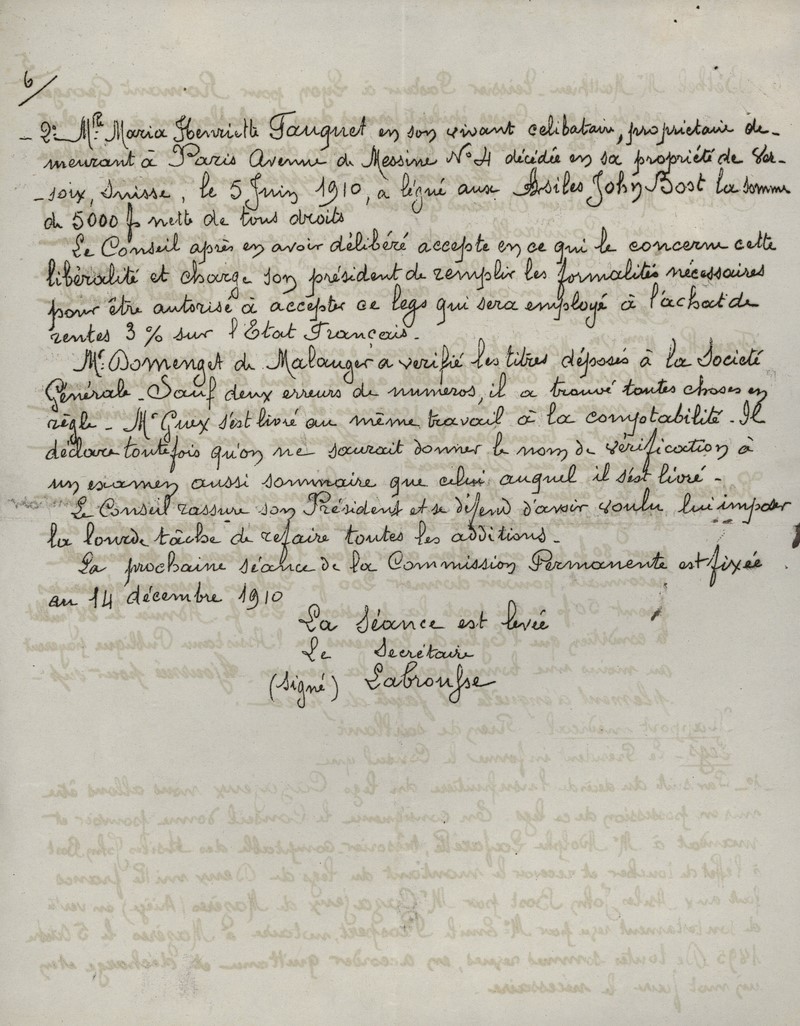 6/
- 2° Mlle Maria Henriette Fauquet en son vivant celibataire, propriétaire de-
meurant à Paris Avenue de Messine N° 4 décédée en sa propriété de Ver-
-soix, Suisse, le 5 Juin 1910, a légué aux Asiles John Bost la somme
de 5000 f nette de tous droits
Le Conseil après en avoir délibéré accepte en ce qui le concerne cette
libéralité et charge son président de remplir les formalités nécessaires
pour être autorisé à accepter ce legs qui sera employé à l'achat de
rentes 3 % sur l'Etat Français.
Mr. Domenget de Malauger a verifié les titres déposés à la Societé
Générale - Sauf deux erreurs de numeros, il a trouvé toutes choses en
règle - Mr Guex s'est livré au même travail à la comptabilité - Il
déclare toutefois qu'on ne saurait donner le nom de vérification à
un examen aussi sommaire que celui auquel il s'est livré -
Le Conseil rassure son Président et se défend d'avoir voulu lui imposer
la lourde tâche de refaire toutes les additions -
La prochaine séance de la Commission Permanente est fixée
au 14 décembre 1910
La Séance est levée
Le Secrétaire
(signé) Labrousse